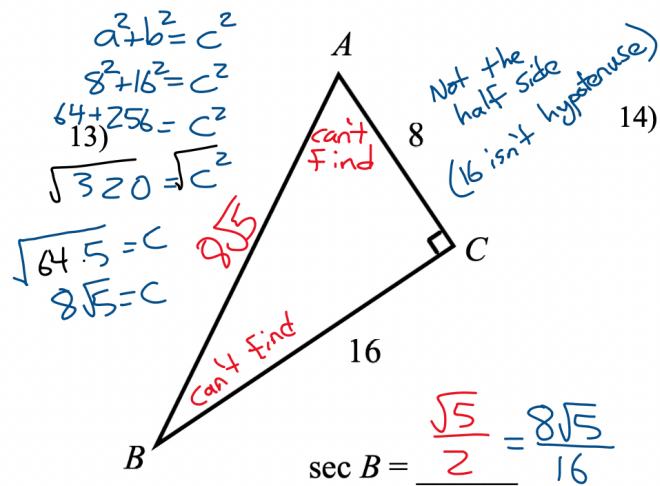 a²+b²=c²
8²+16²=c²
64+256=c²
13)
√320=√c²
√64·5=c
8√5=c
A
can't
find
8
Not the
half side
(16 isn't hypotenuse)
14)
8√5
C
can't find
16
B
sec B = √5/2 = 8√5/16